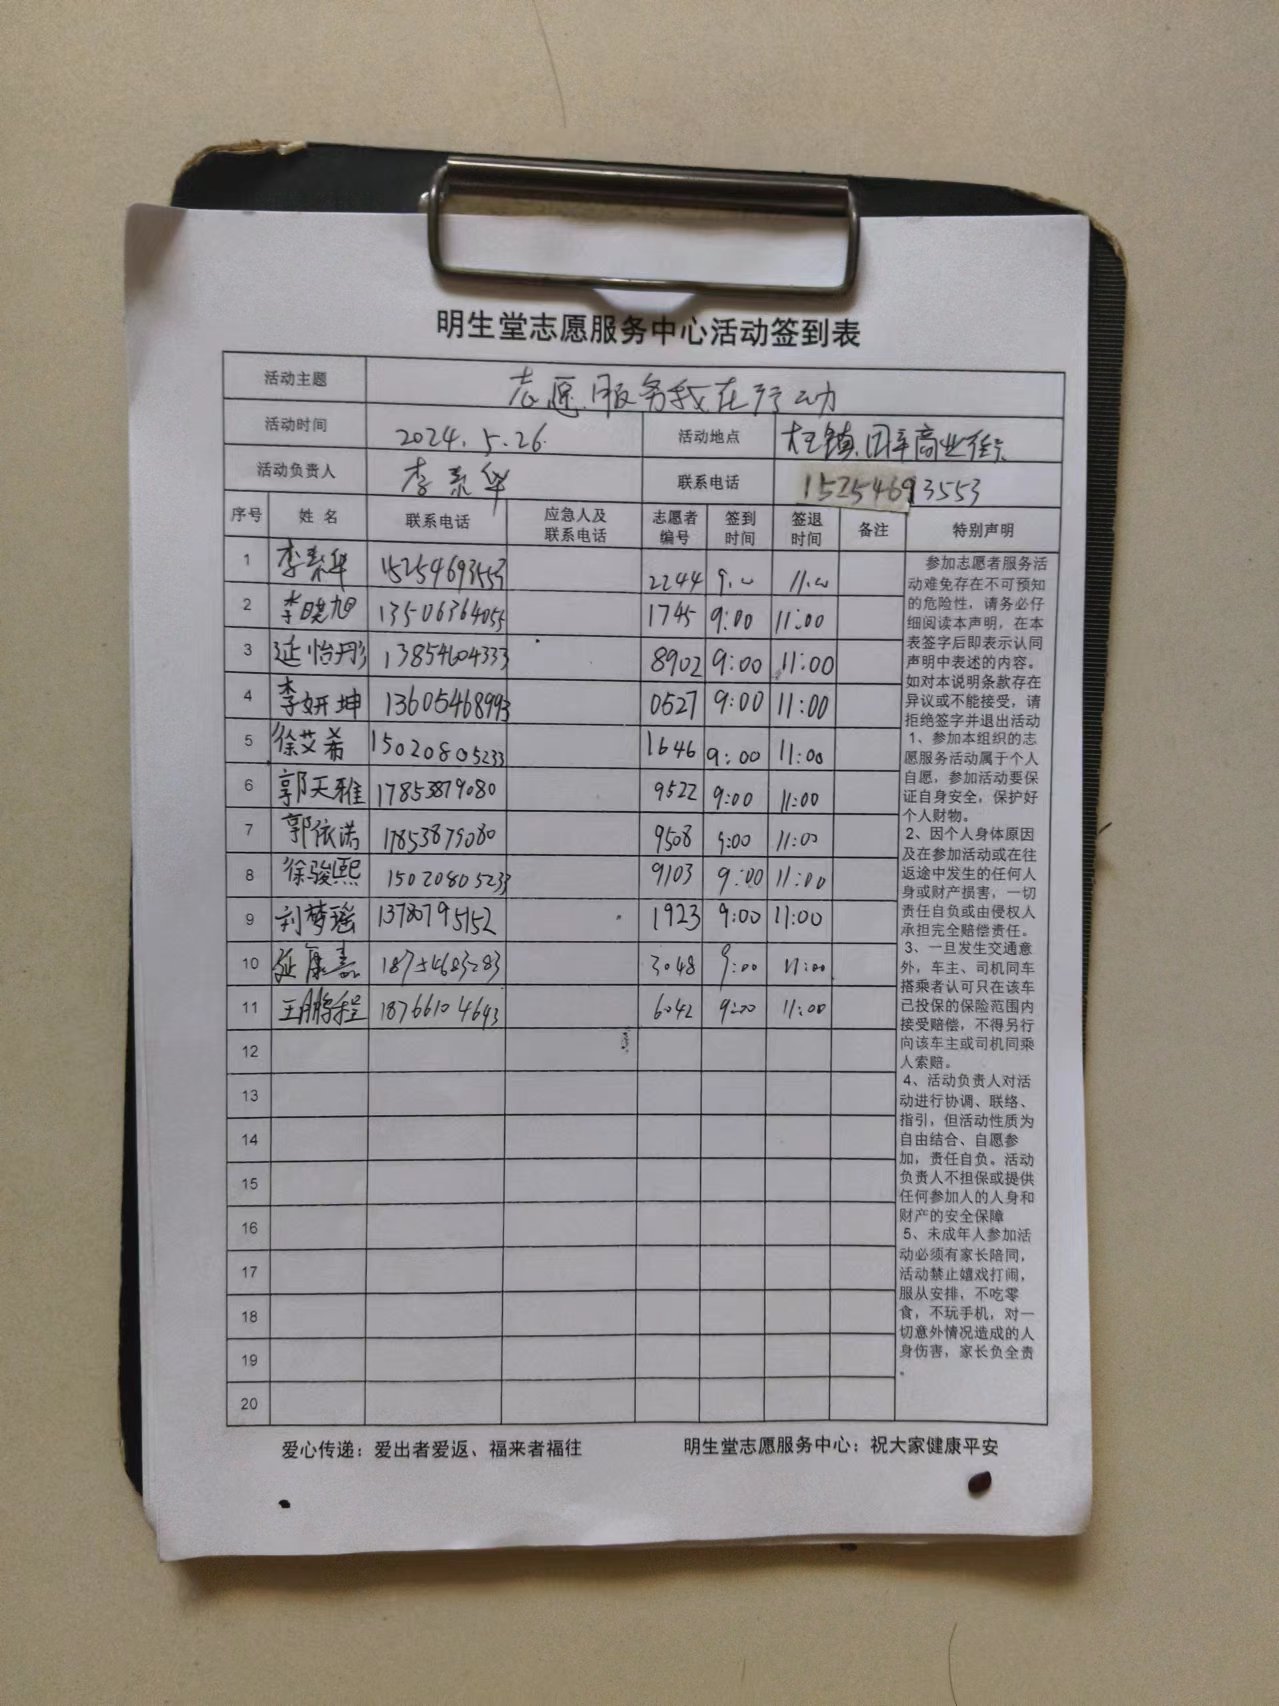 明生堂志愿服务中心活动签到表
活动主题 志愿服务我在行动
活动时间 2024.5.26. 活动地点 商业街
活动负责人 李素华 联系电话 15254693553
序号 姓名 联系电话 应急人及联系电话 志愿者编号 签到时间 签退时间 备注 特别声明
1 李素华 15254693553 2244
2 李晓旭 13506364055 1745 9:00 11:00
3 延怡彤 13854604333 8902 9:00 11:00
4 李妍坤 13605468993 0527 9:00 11:00
5 徐艾希 15020805233 1646 9:00 11:00
6 郭天雅 17853879080 9522 9:00 11:00
7 郭依诺 17853879080 9508 9:00 11:00
8 徐骏熙 15020805233 9103 9:00 11:00
9 刘梦瑶 13780795152 1923 9:00 11:00
10 延康嘉 18754683283 3048 9:00 11:00
11 王鹏程 18766104643 6042 9:00 11:00
12
13
14
15
16
17
18
19
20
参加志愿者服务活
动难免存在不可预知
的危险性，请务必仔
细阅读本声明，在本
表签字后即表示认同
声明中表述的内容。
如对本说明条款存在
异议或不能接受，请
拒绝签字并退出活动
1、参加本组织的志
愿服务活动属于个人
自愿，参加活动要保
证自身安全，保护好
个人财物。
2、因个人身体原因
及在参加活动或在往
返途中发生的任何人
身或财产损害，一切
责任自负或由侵权人
承担完全赔偿责任。
3、一旦发生交通意
外，车主、司机同车
搭乘者认可只在该车
已投保的保险范围内
接受赔偿，不得另行
向该车主或司机同乘
人索赔。
4、活动负责人对活
动进行协调、联络、
指引，但活动性质为
自由结合、自愿参
加，责任自负。活动
负责人不担保或提供
任何参加人的人身和
财产的安全保障
5、未成年人参加活
动必须有家长陪同，
活动禁止嬉戏打闹，
服从安排，不吃零
食，不玩手机，对一
切意外情况造成的人
身伤害，家长负全责
。
爱心传递：爱出者爱返、福来者福往 明生堂志愿服务中心：祝大家健康平安